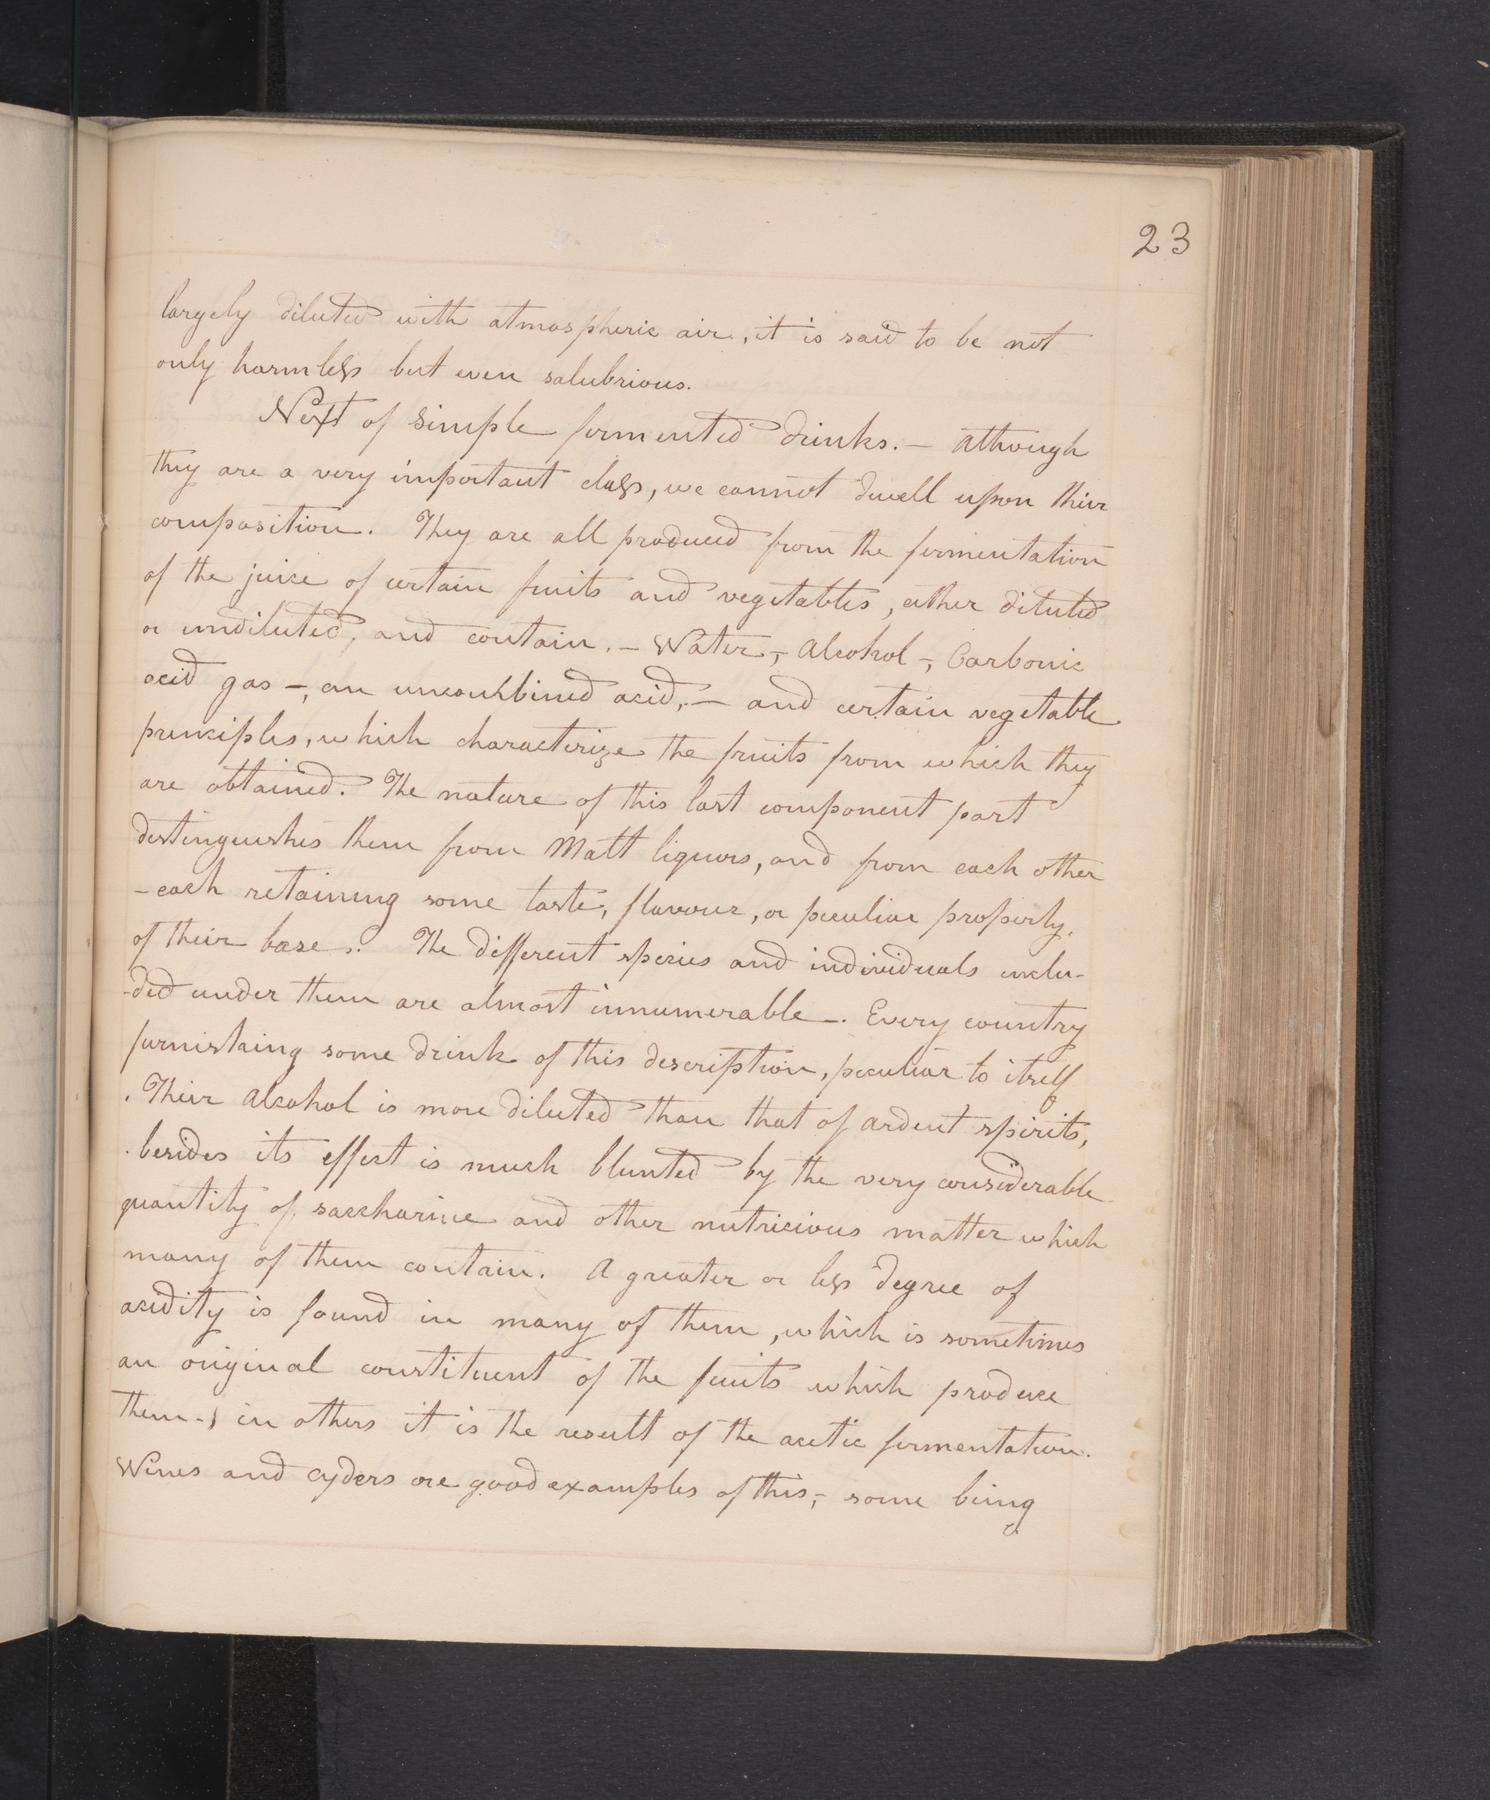 23
largely diluted with atmospheric air, it is said to be not
only harmless but even salubrious.
Next of simple fermented drinks. — Although
they are a very important class, we cannot dwell upon their
composition. They are all produced from the fermentation
of the juice of certain fruits and vegetables, either diluted
or undiluted, and contain. — Water, — Alcohol —, Carbonic
acid gas —, an uncombined acid, — and certain vegetable
principles, which characterize the fruits from which they
are obtained. The nature of this last component part
distinguishes them from Malt liquors, and from each other
— each retaining some taste, flavour, or peculiar property,
of their base. The different species and individuals inclu-
-ded under them are almost innumerable —. Every country
furnishing some drink of this description, peculiar to itself
. Their Alcohol is more diluted than that of ardent spirits,
. besides its effect is much blunted by the very considerable
quantity of saccharine and other nutricious matter which
many of them contain. A greater or less degree of
acidity is found in many of them, which is sometimes
an original constituent of the fruits which produce
them -, in others it is the result of the acetic fermentation.
Wines and Cyders are good examples of this, — some being